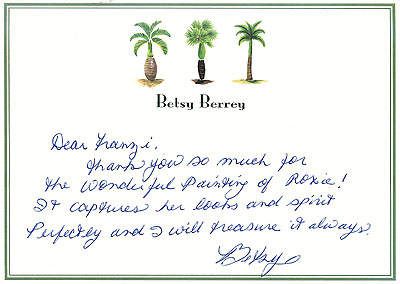 Betsy Berrey
Dear Franzi.
Thank you so much for
the wonderful Painting of Roxie!
It captures her looks and spirit
Perfectly and I will treasure it always.
Betsy